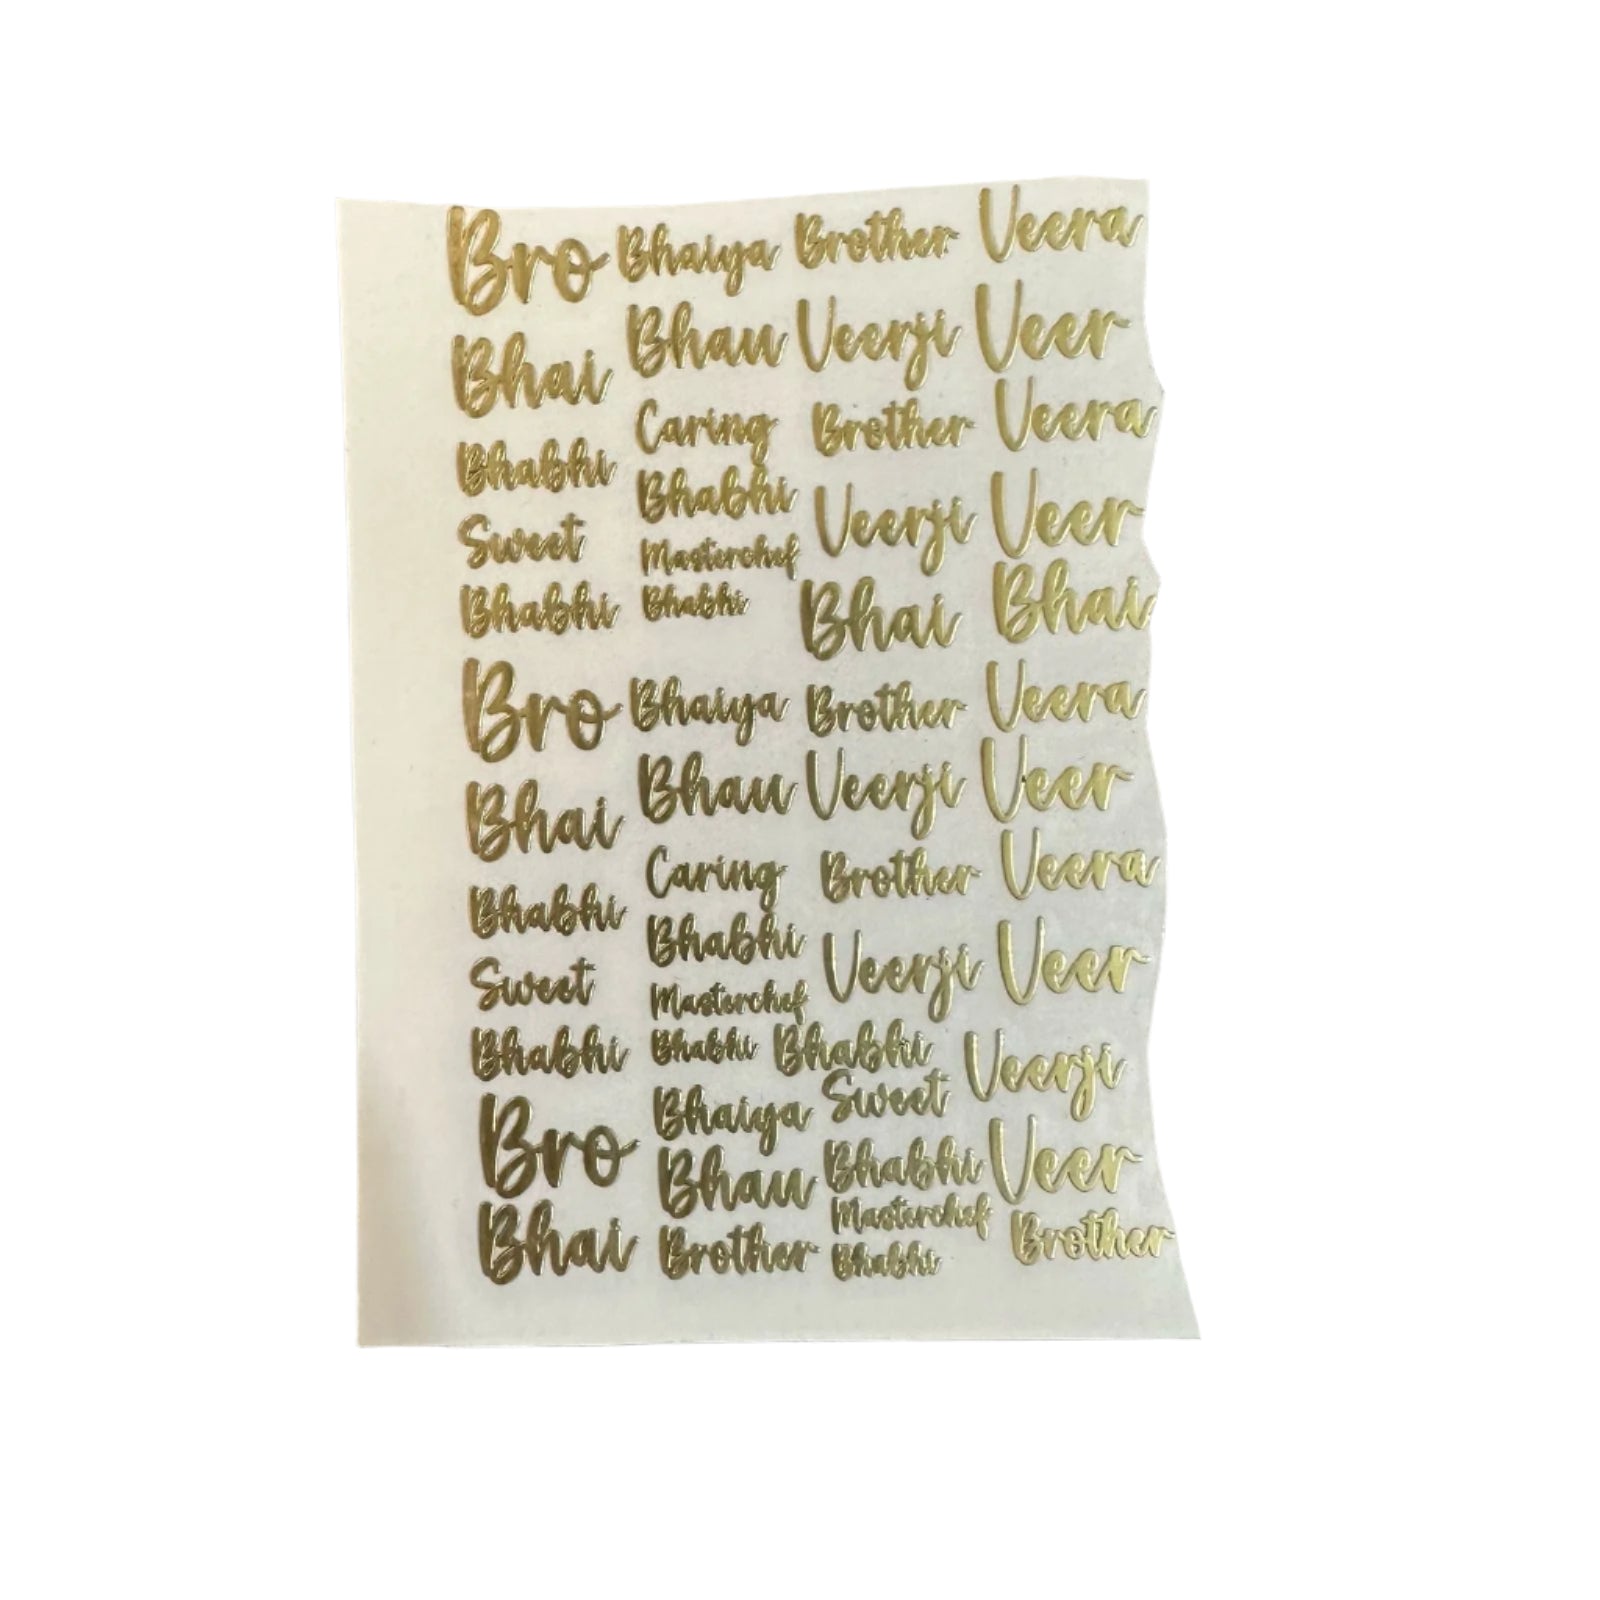 Bro Bhaiya Brother Veera
Bhai Bhau Veerji Veer
Bhabhi Caring Brother Veera
Sweet Bhabhi Veerji Veer
Bhabhi Masterchef
Bhabhi Bhai Bhai
Bro Bhaiya Brother Veera
Bhai Bhau Veerji Veer
Bhabhi Caring Brother Veera
Sweet Bhabhi Veerji Veer
Bhabhi Masterchef
Bhabhi Bhabhi Veerji
Bro Bhaiya Sweet
Bhau Bhabhi Veer
Bhai Brother Masterchef Brother
Bhabhi